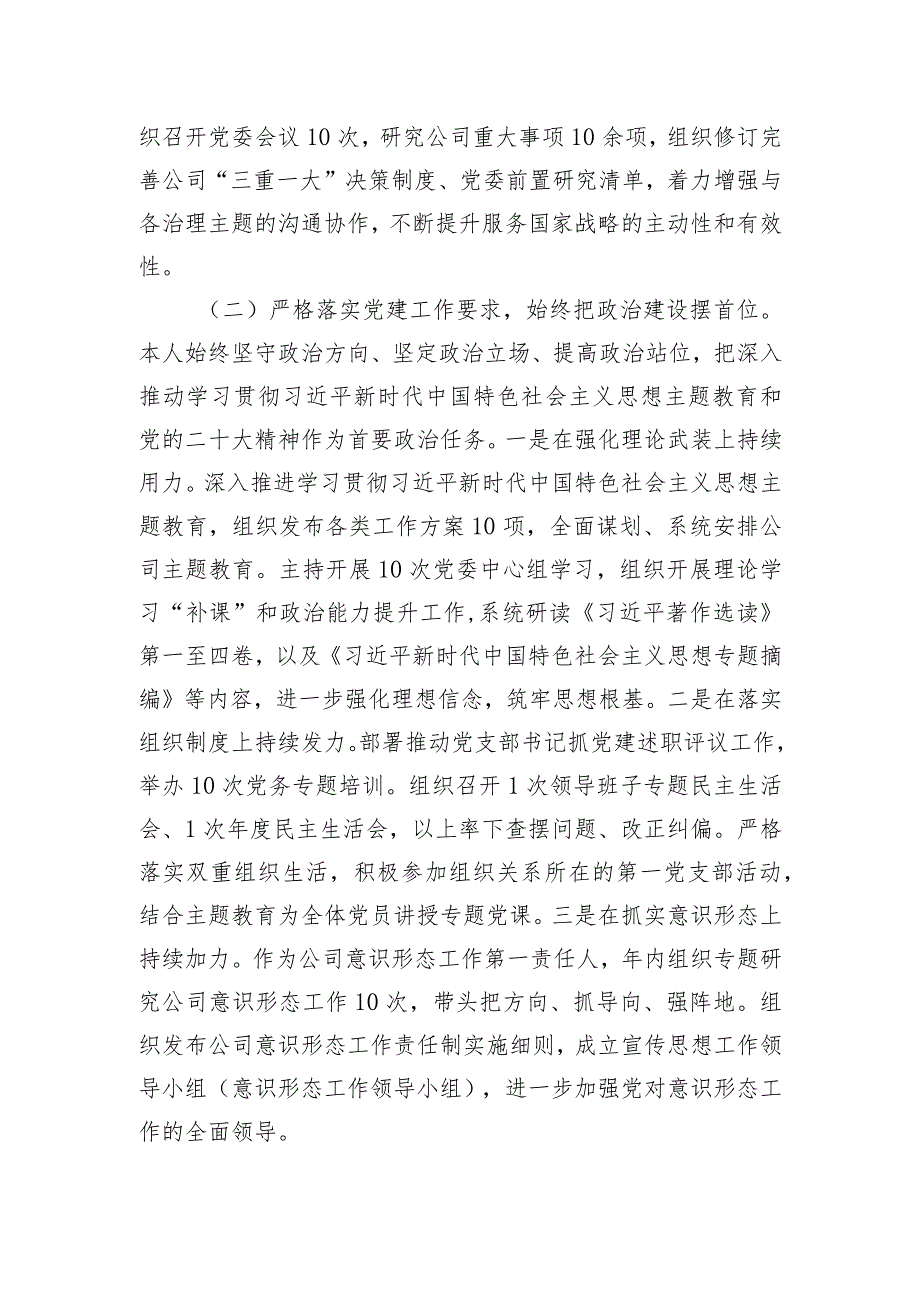 织召开党委会议10次，研究公司重大事项10余项，组织修订完
善公司“三重一大”决策制度、党委前置研究清单，着力增强与
各治理主题的沟通协作，不断提升服务国家战略的主动性和有效
性。
（二）严格落实党建工作要求，始终把政治建设摆首位。
本人始终坚守政治方向、坚定政治立场、提高政治站位，把深入
推动学习贯彻习近平新时代中国特色社会主义思想主题教育和
党的二十大精神作为首要政治任务。一是在强化理论武装上持续
用力。深入推进学习贯彻习近平新时代中国特色社会主义思想主
题教育，组织发布各类工作方案10项，全面谋划、系统安排公
司主题教育。主持开展10次党委中心组学习，组织开展理论学
习“补课”和政治能力提升工作,系统研读《习近平著作选读》
第一至四卷，以及《习近平新时代中国特色社会主义思想专题摘
编》等内容，进一步强化理想信念，筑牢思想根基。二是在落实
组织制度上持续发力。部署推动党支部书记抓党建述职评议工作，
举办10次党务专题培训。组织召开1次领导班子专题民主生活
会、1次年度民主生活会，以上率下查摆问题、改正纠偏。严格
落实双重组织生活，积极参加组织关系所在的第一党支部活动，
结合主题教育为全体党员讲授专题党课。三是在抓实意识形态上
持续加力。作为公司意识形态工作第一责任人，年内组织专题研
究公司意识形态工作10次，带头把方向、抓导向、强阵地。组
织发布公司意识形态工作责任制实施细则，成立宣传思想工作领
导小组（意识形态工作领导小组），进一步加强党对意识形态工
作的全面领导。